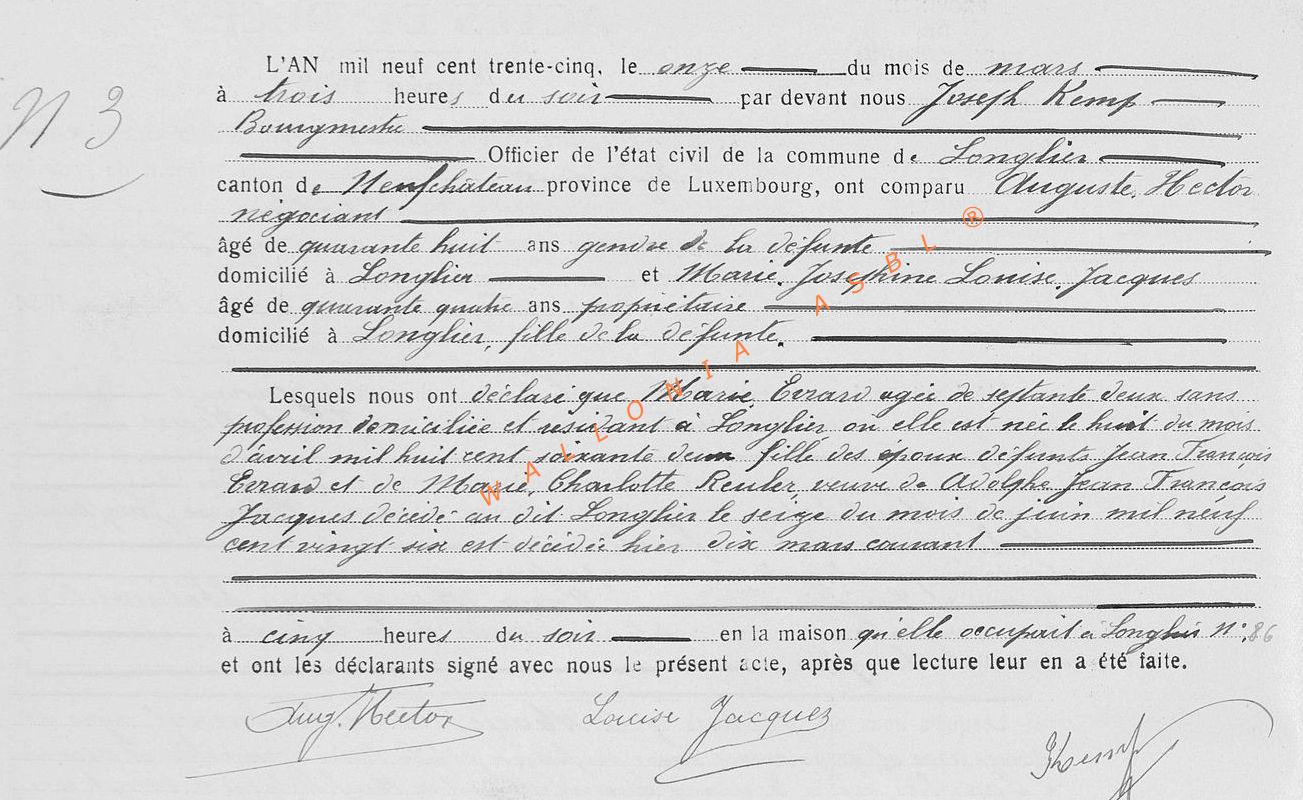 N 3
L'AN mil neuf cent trente-cinq, le onze du mois de mars
à trois heures du soir par devant nous Joseph Kemp
Bourgmestre
Officier de l'état civil de la commune de Longlier
canton de Neufchâteau province de Luxembourg, ont comparu Auguste, Hector
négociant
âgé de quarante huit ans gendre de la défunte
domicilié à Longlier et Marie, Joséphine Louise, Jacques
âgé de quarante quatre ans propriétaire
domicilié à Longlier, fille de la défunte.
Lesquels nous ont déclaré que Marie, Evrard agée de septante deux sans
profession domiciliée et résidant à Longlier où elle est née le huit du mois
d'avril mil huit cent soixante deux fille des époux défunts Jean François
Evrard et de Marie, Charlotte Reuler, veuve de Adolphe Jean François
Jacques décédé au dit Longlier le seize du mois de juin mil neuf
cent vingt six est décédée hier dix mars courant
à cinq heures du soir en la maison qu'elle occupait à Longlier N°, 86
et ont les déclarants signé avec nous le présent acte, après que lecture leur en a été faite.
Aug. Hector Louise Jacques
Kemp
WALLONIA ASBL ®